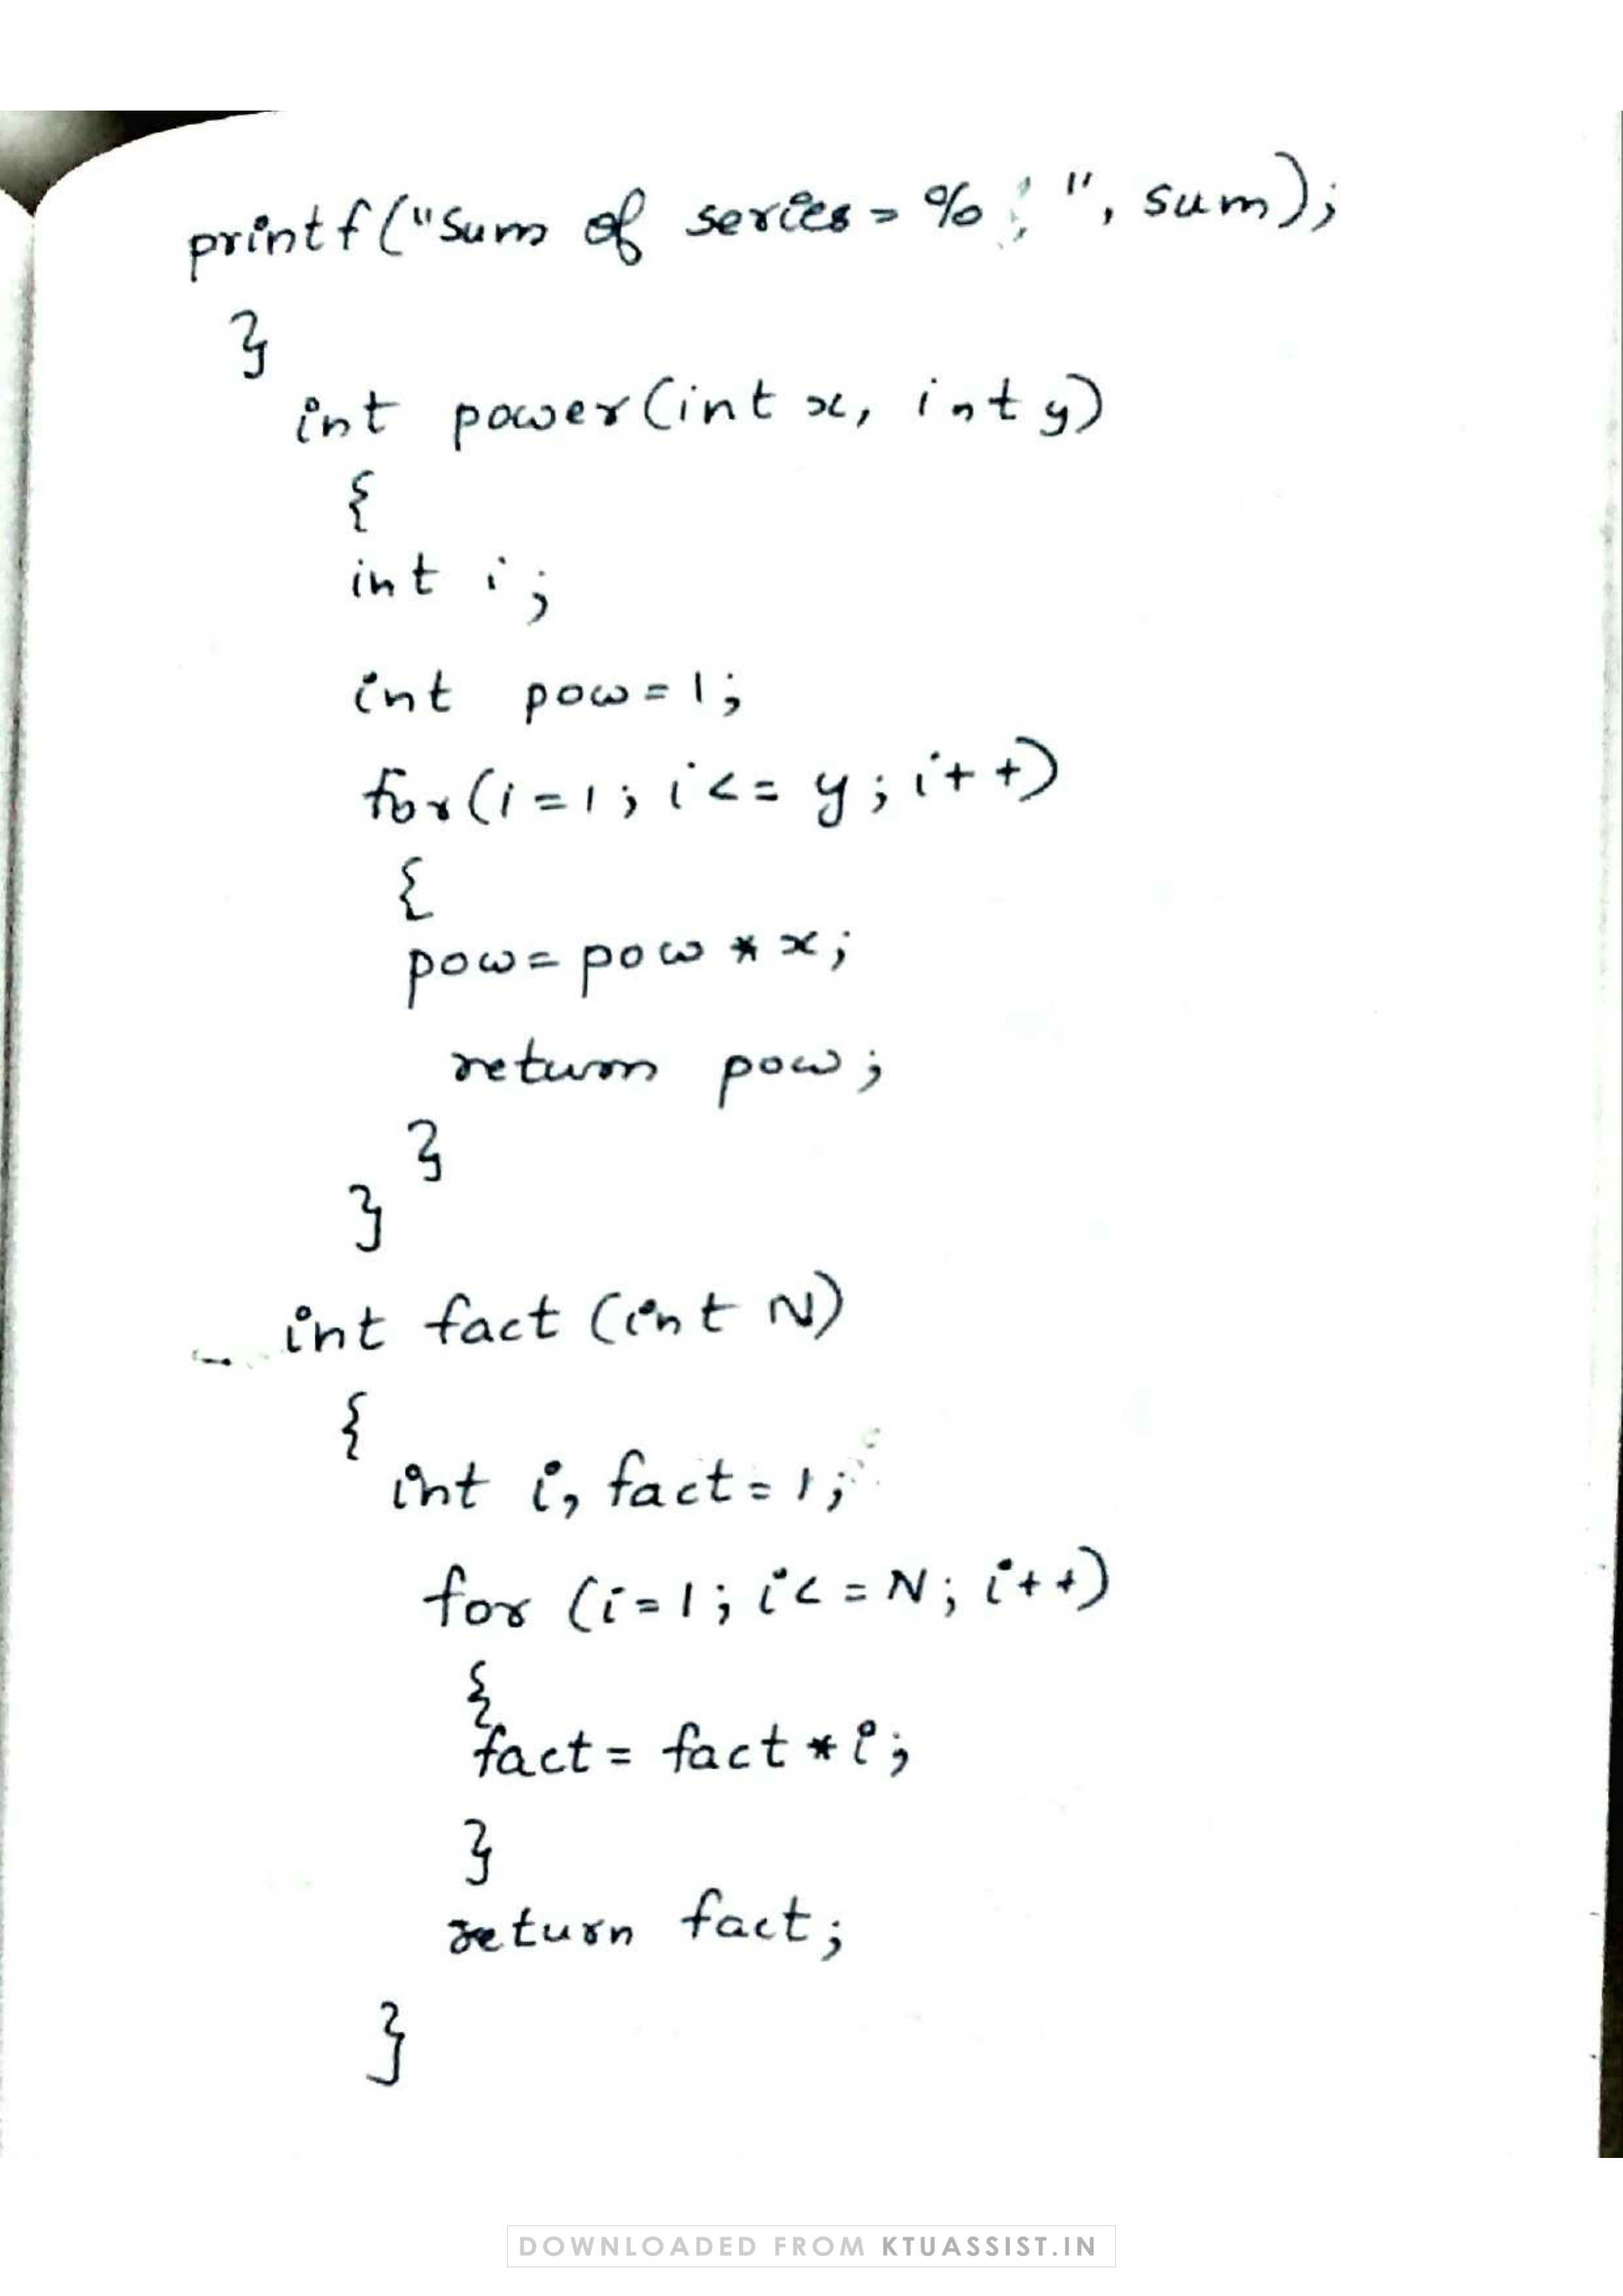 printf("Sum of series = % ", sum);
}
int power(int x, int y)
{
int i;
int pow=1;
for(i=1; i<= y; i++)
{
pow= pow * x;
return pow;
}
}
int fact (int N)
{
int i, fact=1;
for (i=1; i<=N; i++)
{
fact= fact * i;
}
return fact;
}
DOWNLOADED FROM KTUASSIST.IN